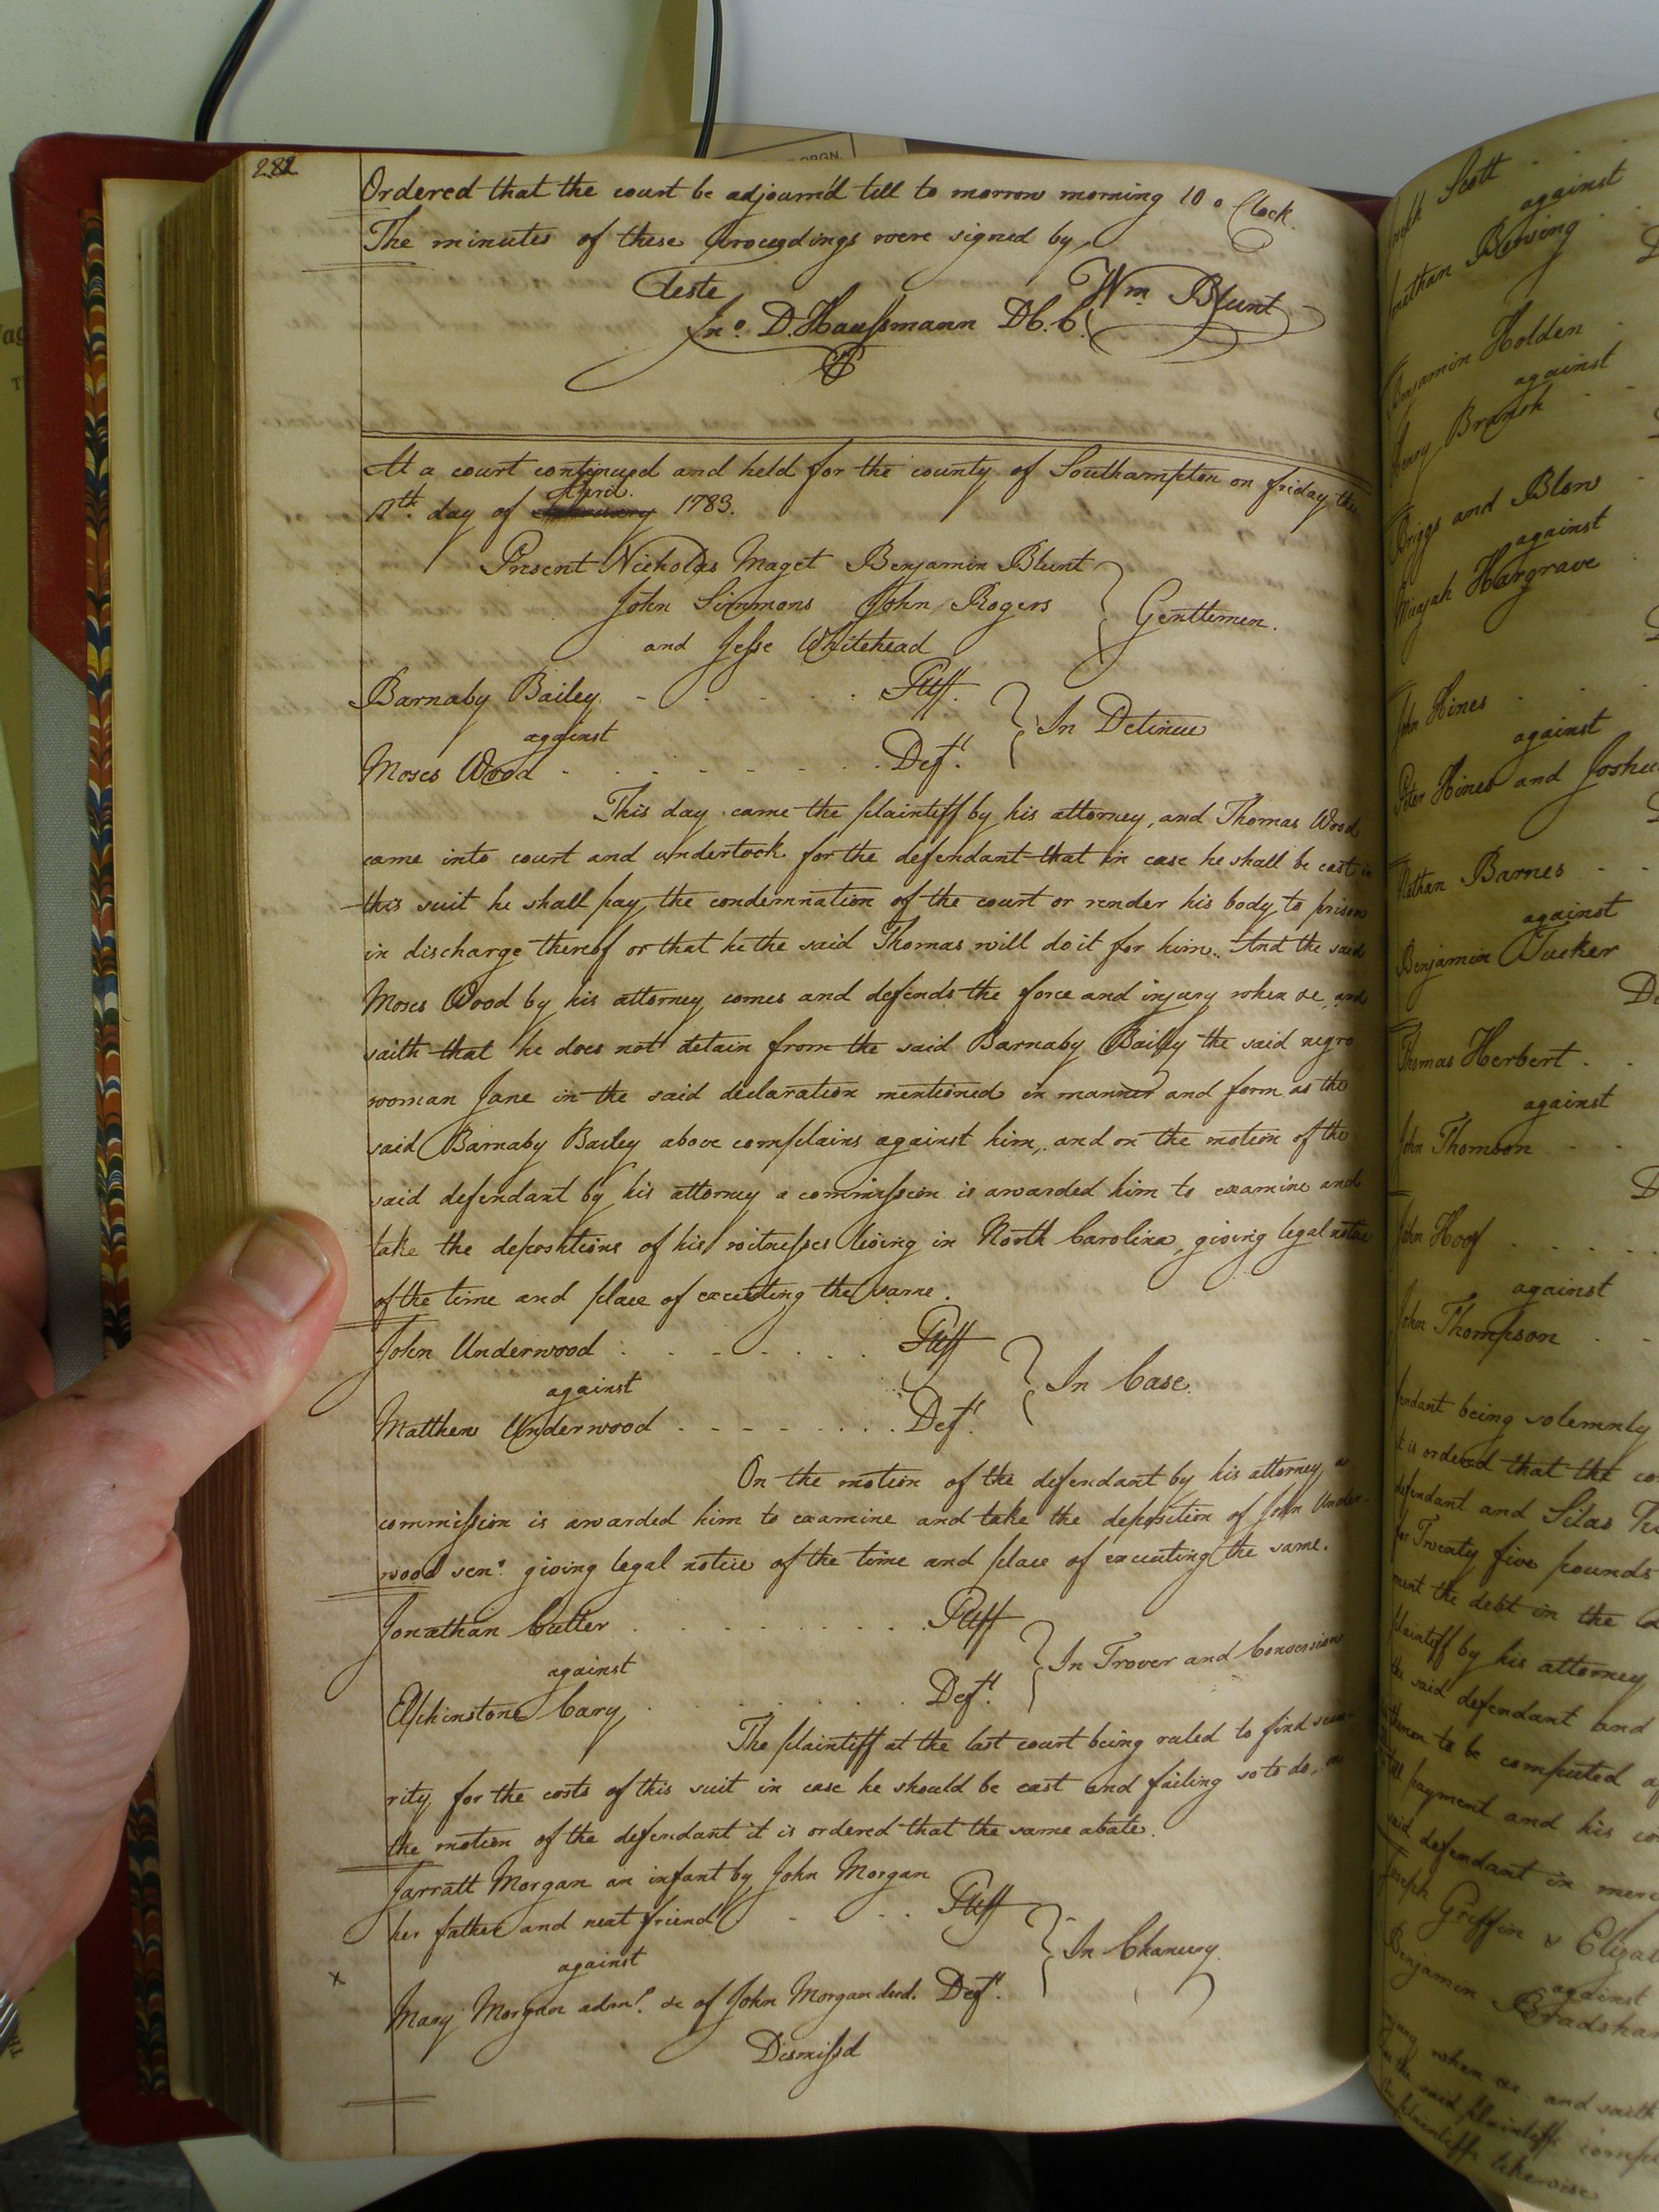 282
Ordered that the court be adjourn'd till to morrow morning 10 o Clock.
The minutes of these proceedings were signed by
Teste
Wm Blunt
Jno. D. Haussmann D.C.C.
At a court continued and held for the county of Southampton on friday the
April.
11th. day of 1783.
Present Nicholas Maget Benjamin Blunt
John Simmons John Rogers
Gentlemen.
and Jesse Whitehead
Barnaby Bailey Pltff.
against
In Detinue
Moses Wood Deft.
This day came the plaintiff by his attorney, and Thomas Wood
came into court and undertook for the defendant that in case he shall be cast in
this suit he shall pay the condemnation of the court or render his body to prison
in discharge thereof or that he the said Thomas will do it for him. And the said
Moses Wood by his attorney comes and defends the force and injury when &c and
saith that he does not detain from the said Barnaby Bailey the said negro
woman Jane in the said declaration mentioned in manner and form as the
said Barnaby Bailey above complains against him, and on the motion of the
said defendant by his attorney a commission is awarded him to examine and
take the depositions of his witnesses living in North Carolina, giving legal notice
of the time and place of executing the same.
John Underwood Pltff
against
In Case.
Matthew Underwood Deft.
On the motion of the defendant by his attorney a
commission is awarded him to examine and take the deposition of John Under-
wood senr. giving legal notice of the time and place of executing the same.
Jonathan Cutler Pltff
against
In Trover and Conversion
Elphinstone Cary Deft.
The plaintiff at the last court being ruled to find secu-
rity for the costs of this suit in case he should be cast and failing so to do, on
the motion of the defendant it is ordered that the same abate.
Jarratt Morgan an infant by John Morgan
her father and next friend Pltff
against
In Chancery
x
Mary Morgan admx. &c of John Morgan decd. Deft.
Dismissd
Scott
against
Benjamin Holden
against
Henry Branch
Briggs and Blow
against
Micajah Hargrave
John Hines
against
Peter Hines and Joshu
Nathan Barnes
against
Benjamin Tucker
De
Thomas Herbert
against
John Thomson
D
John Hoof
against
John Thompson
fendant being solemnly
it is ordered that the co
defendant and Silas
for Twenty five pounds
ment the debt in the
plaintiff by his attorney
the said defendant and
thereon to be computed
till payment and his co
said defendant in merc
Joseph Griffin & Eliza
against
Benjamin Bradsha
injury when &c. and saith
the said plaintiffs comp
plaintiffs likewise